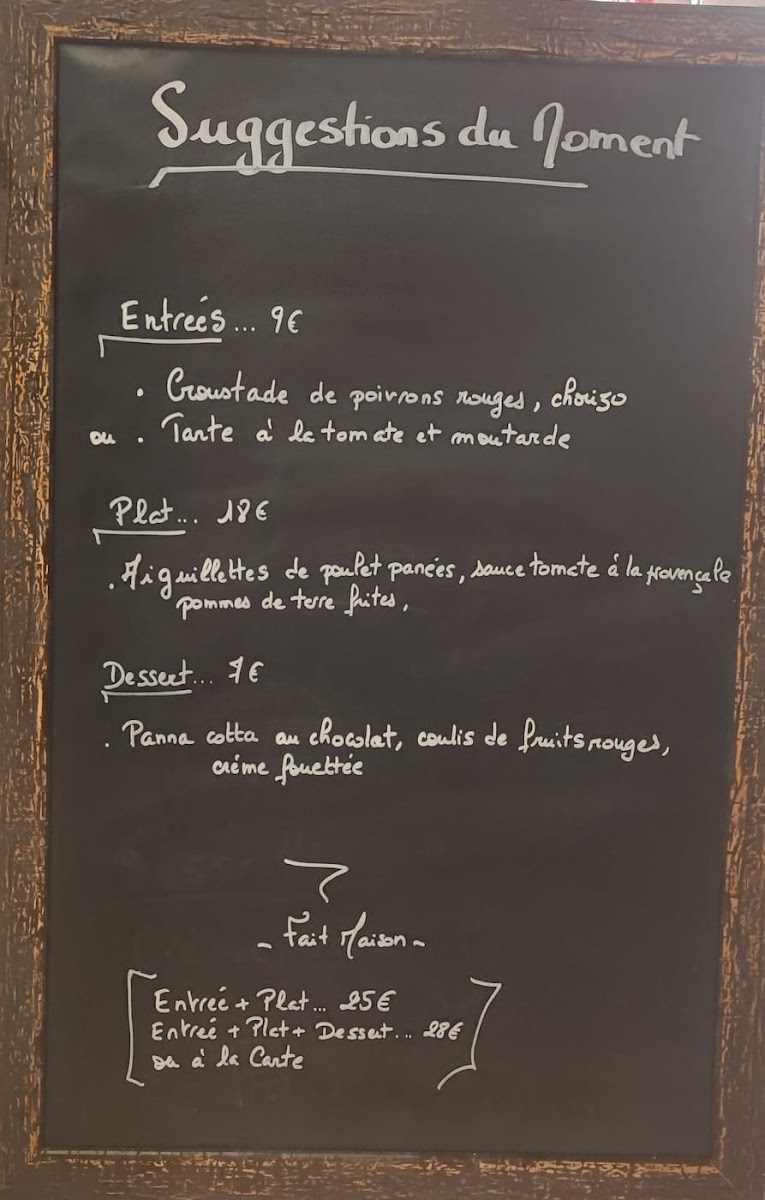 Suggestions du Moment
Entreés... 9€
• Croustade de poivrons rouges, chorizo
ou • Tarte à la tomate et moutarde
Plat... 18€
. Aiguillettes de poulet panées, sauce tomate à la provençale
pommes de terre frites,
Dessert... 7€
. Panna cotta au chocolat, coulis de fruits rouges,
crème fouettée
- Fait Maison -
Entreé + Plat... 25€
Entreé + Plat + Dessert... 28€
ou à la Carte